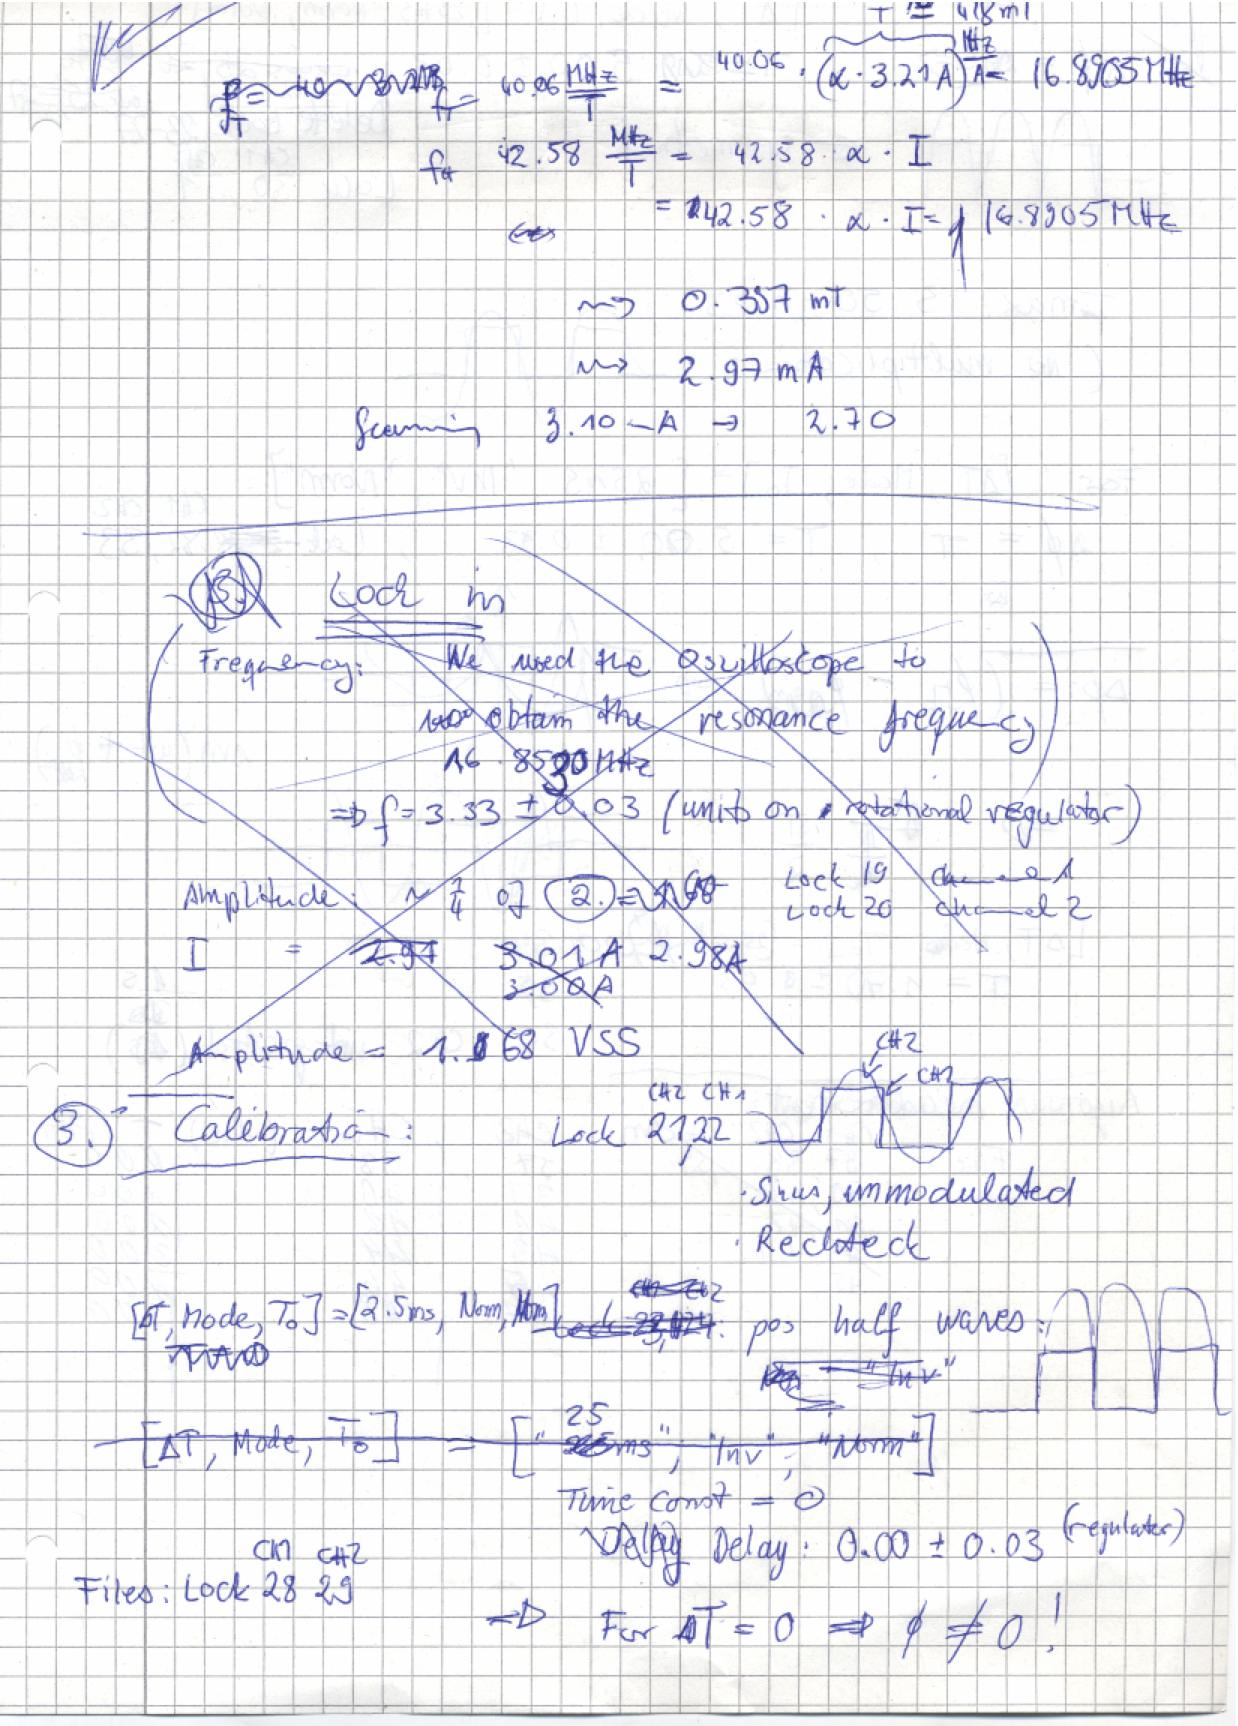 40.06 MHz/T = 40.06 · (α · 3.21 A) MHz/A = 16.8905 MHz
f 42.58 MHz/T = 42.58 · α · I
= 42.58 · α · I = 16.8905 MHz
⇝ 0.397 mT
⇝ 2.97 mA
Scanning 3.10 A → 2.70
Lock in
(Frequency: We used the Oszilloscope to
obtain the resonance frequency)
16.8530 MHz
⇒ f = 3.33 ± 0.03 (units on rotational regulator)
Amplitude: ~ 1/4 of 2. = Lock 19 channel 1
Lock 20 channel 2
I = 2.97 3.01 A 2.98A
3.00A
Amplitude = 1.168 VSS
CH2
CH1
CH2 CH1
3. Calibration: Lock 21,22
· Sinus, unmodulated
· Rechteck
CH1 CH2
[ΔT, Mode, T₀] = [2.5ms, Norm, Norm] Lock pos half waves:
"Inv"
25
[ΔT, Mode, T₀] = [" ms", "Inv", "Norm"]
Time const = 0
Delay: 0.00 ± 0.03 (regulater)
CH1 CH2
Files: Lock 28 29
⇒ For ΔT = 0 ⇒ ϕ ≠ 0 !